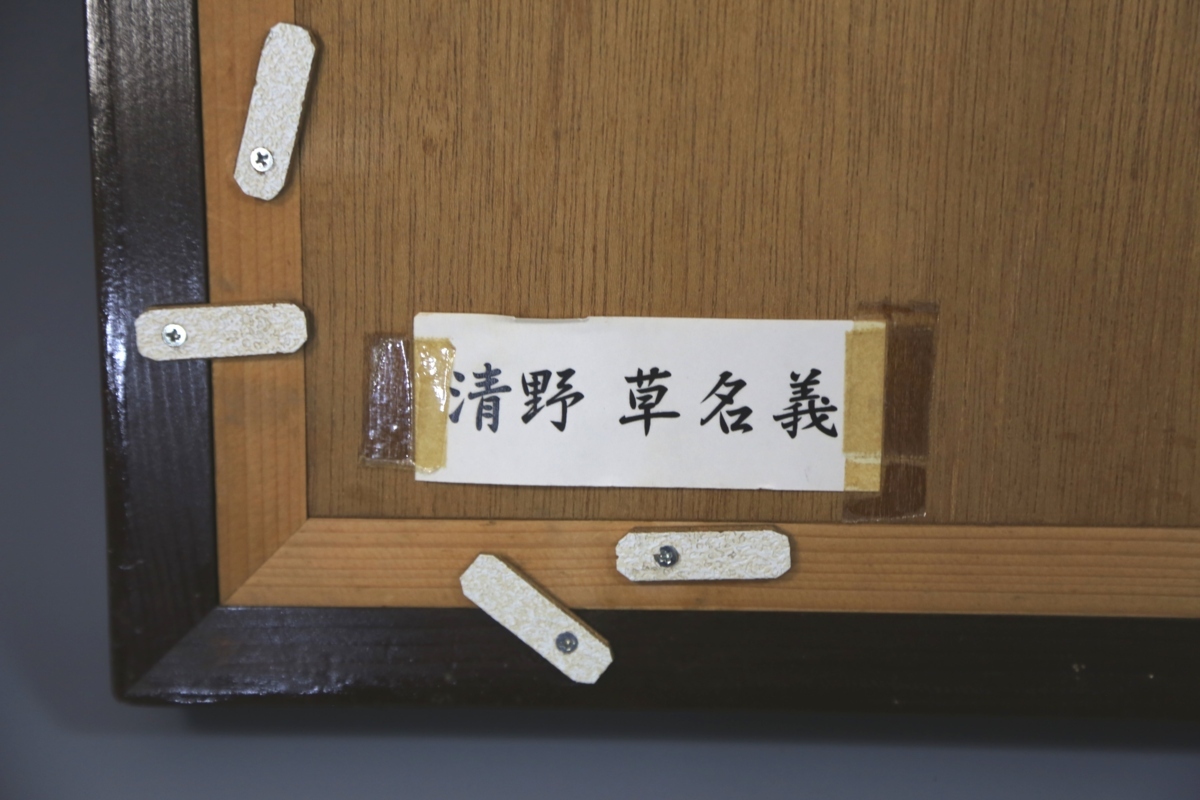 清野 草名義